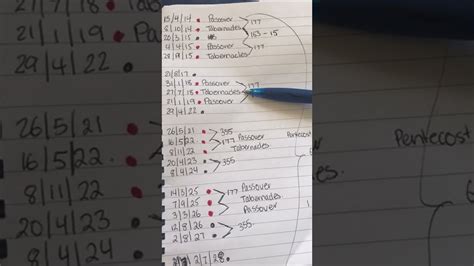 15/4/14 Passover
8/10/14 Tabernacles 177
20/3/15 163-15
4/4/15 Passover 177
28/9/15 Tabernacles
21/8/17
31/1/18 Passover 177
27/7/18 Tabernacles
21/1/19 Passover
29/4/22
26/5/21 355
16/5/22 177 Passover
8/11/22 Tabernacles
20/4/23 355
8/4/24
Pentecost
14/3/25 177 Passover
7/9/25 Tabernacles
3/3/26 Passover
12/8/26 355
2/8/27
27/7/18
21/1/19
29/4/22
16/5/22
8/11/22
20/4/23
8/4/24